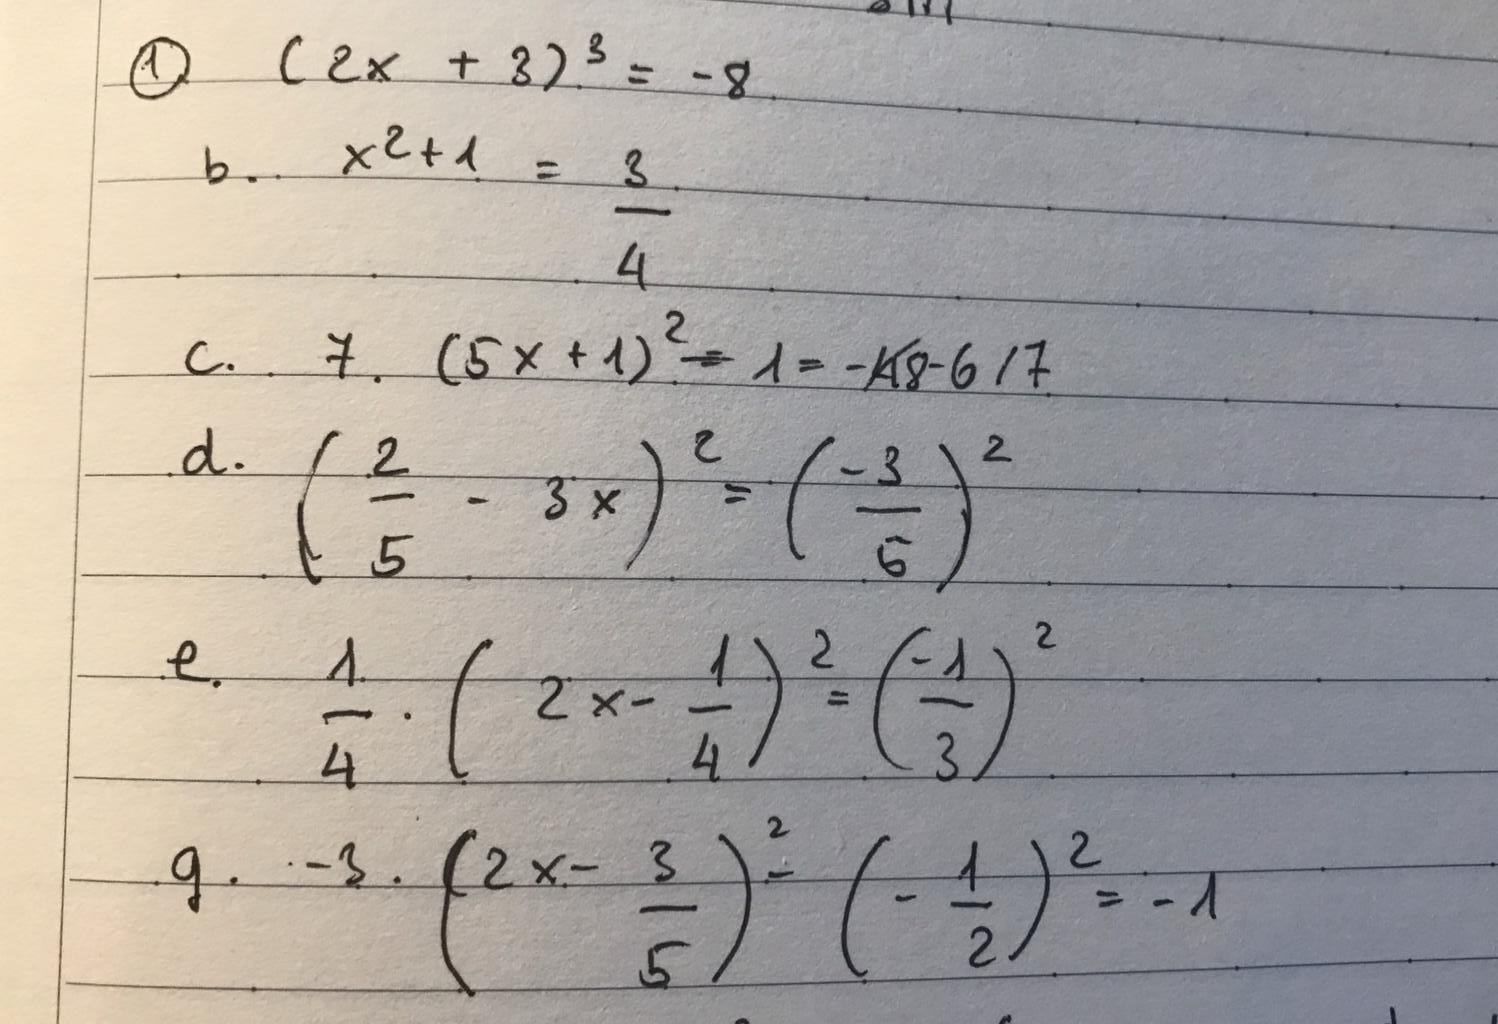 ① (2x + 3)³ = -8
b. x² + 1 = 3/4
c. 7. (5x + 1)² - 1 = -6/7
d. (2/5 - 3x)² = (-3/5)²
e. 1/4 . (2x - 1/4)² = (-1/3)²
g. -3 . (2x - 3/5)² - (-1/2)² = -1